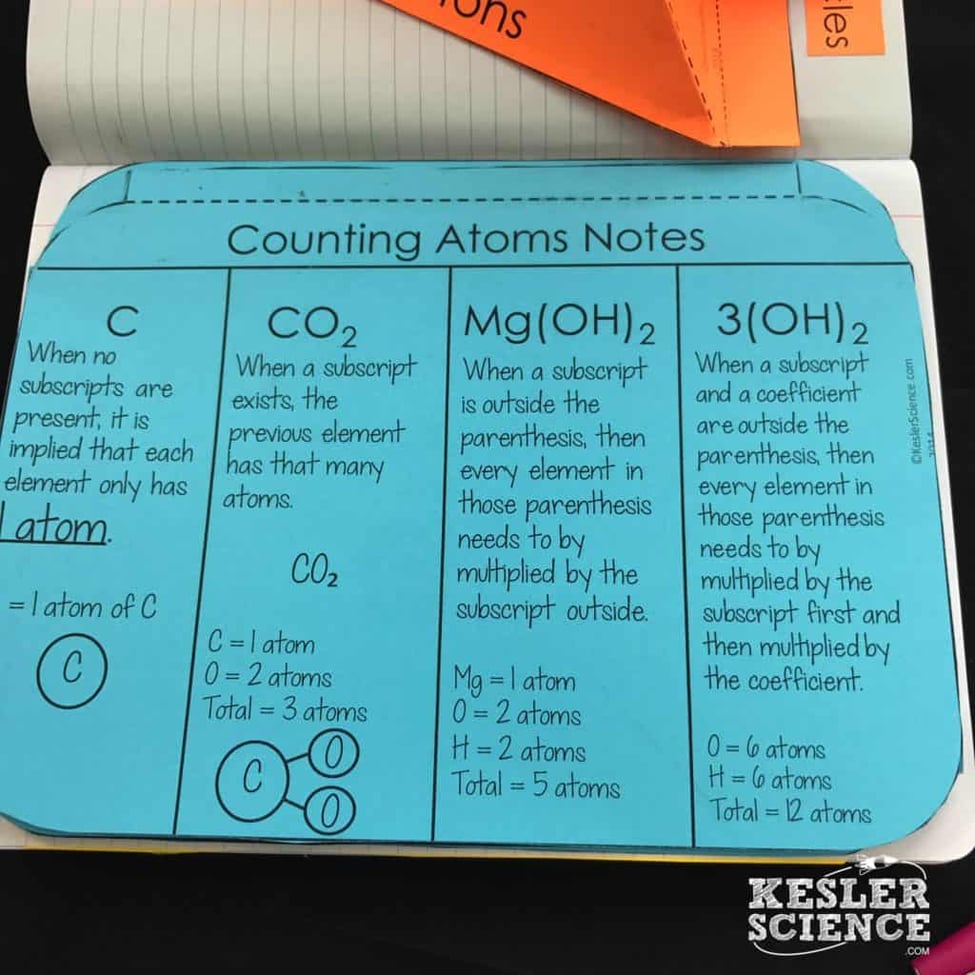 ons
les
Counting Atoms Notes
C
When no
subscripts are
present, it is
implied that each
element only has
1 atom.
= 1 atom of C
C
CO₂
When a subscript
exists, the
previous element
has that many
atoms.
CO₂
C = 1 atom
O = 2 atoms
Total = 3 atoms
C
O
O
Mg(OH)₂
When a subscript
is outside the
parenthesis, then
every element in
those parenthesis
needs to by
multiplied by the
subscript outside.
Mg = 1 atom
O = 2 atoms
H = 2 atoms
Total = 5 atoms
3(OH)₂
When a subscript
and a coefficient
are outside the
parenthesis, then
every element in
those parenthesis
needs to by
multiplied by the
subscript first and
then multiplied by
the coefficient.
O = 6 atoms
H = 6 atoms
Total = 12 atoms
©KeslerScience.com
KESLER
SCIENCE
.COM